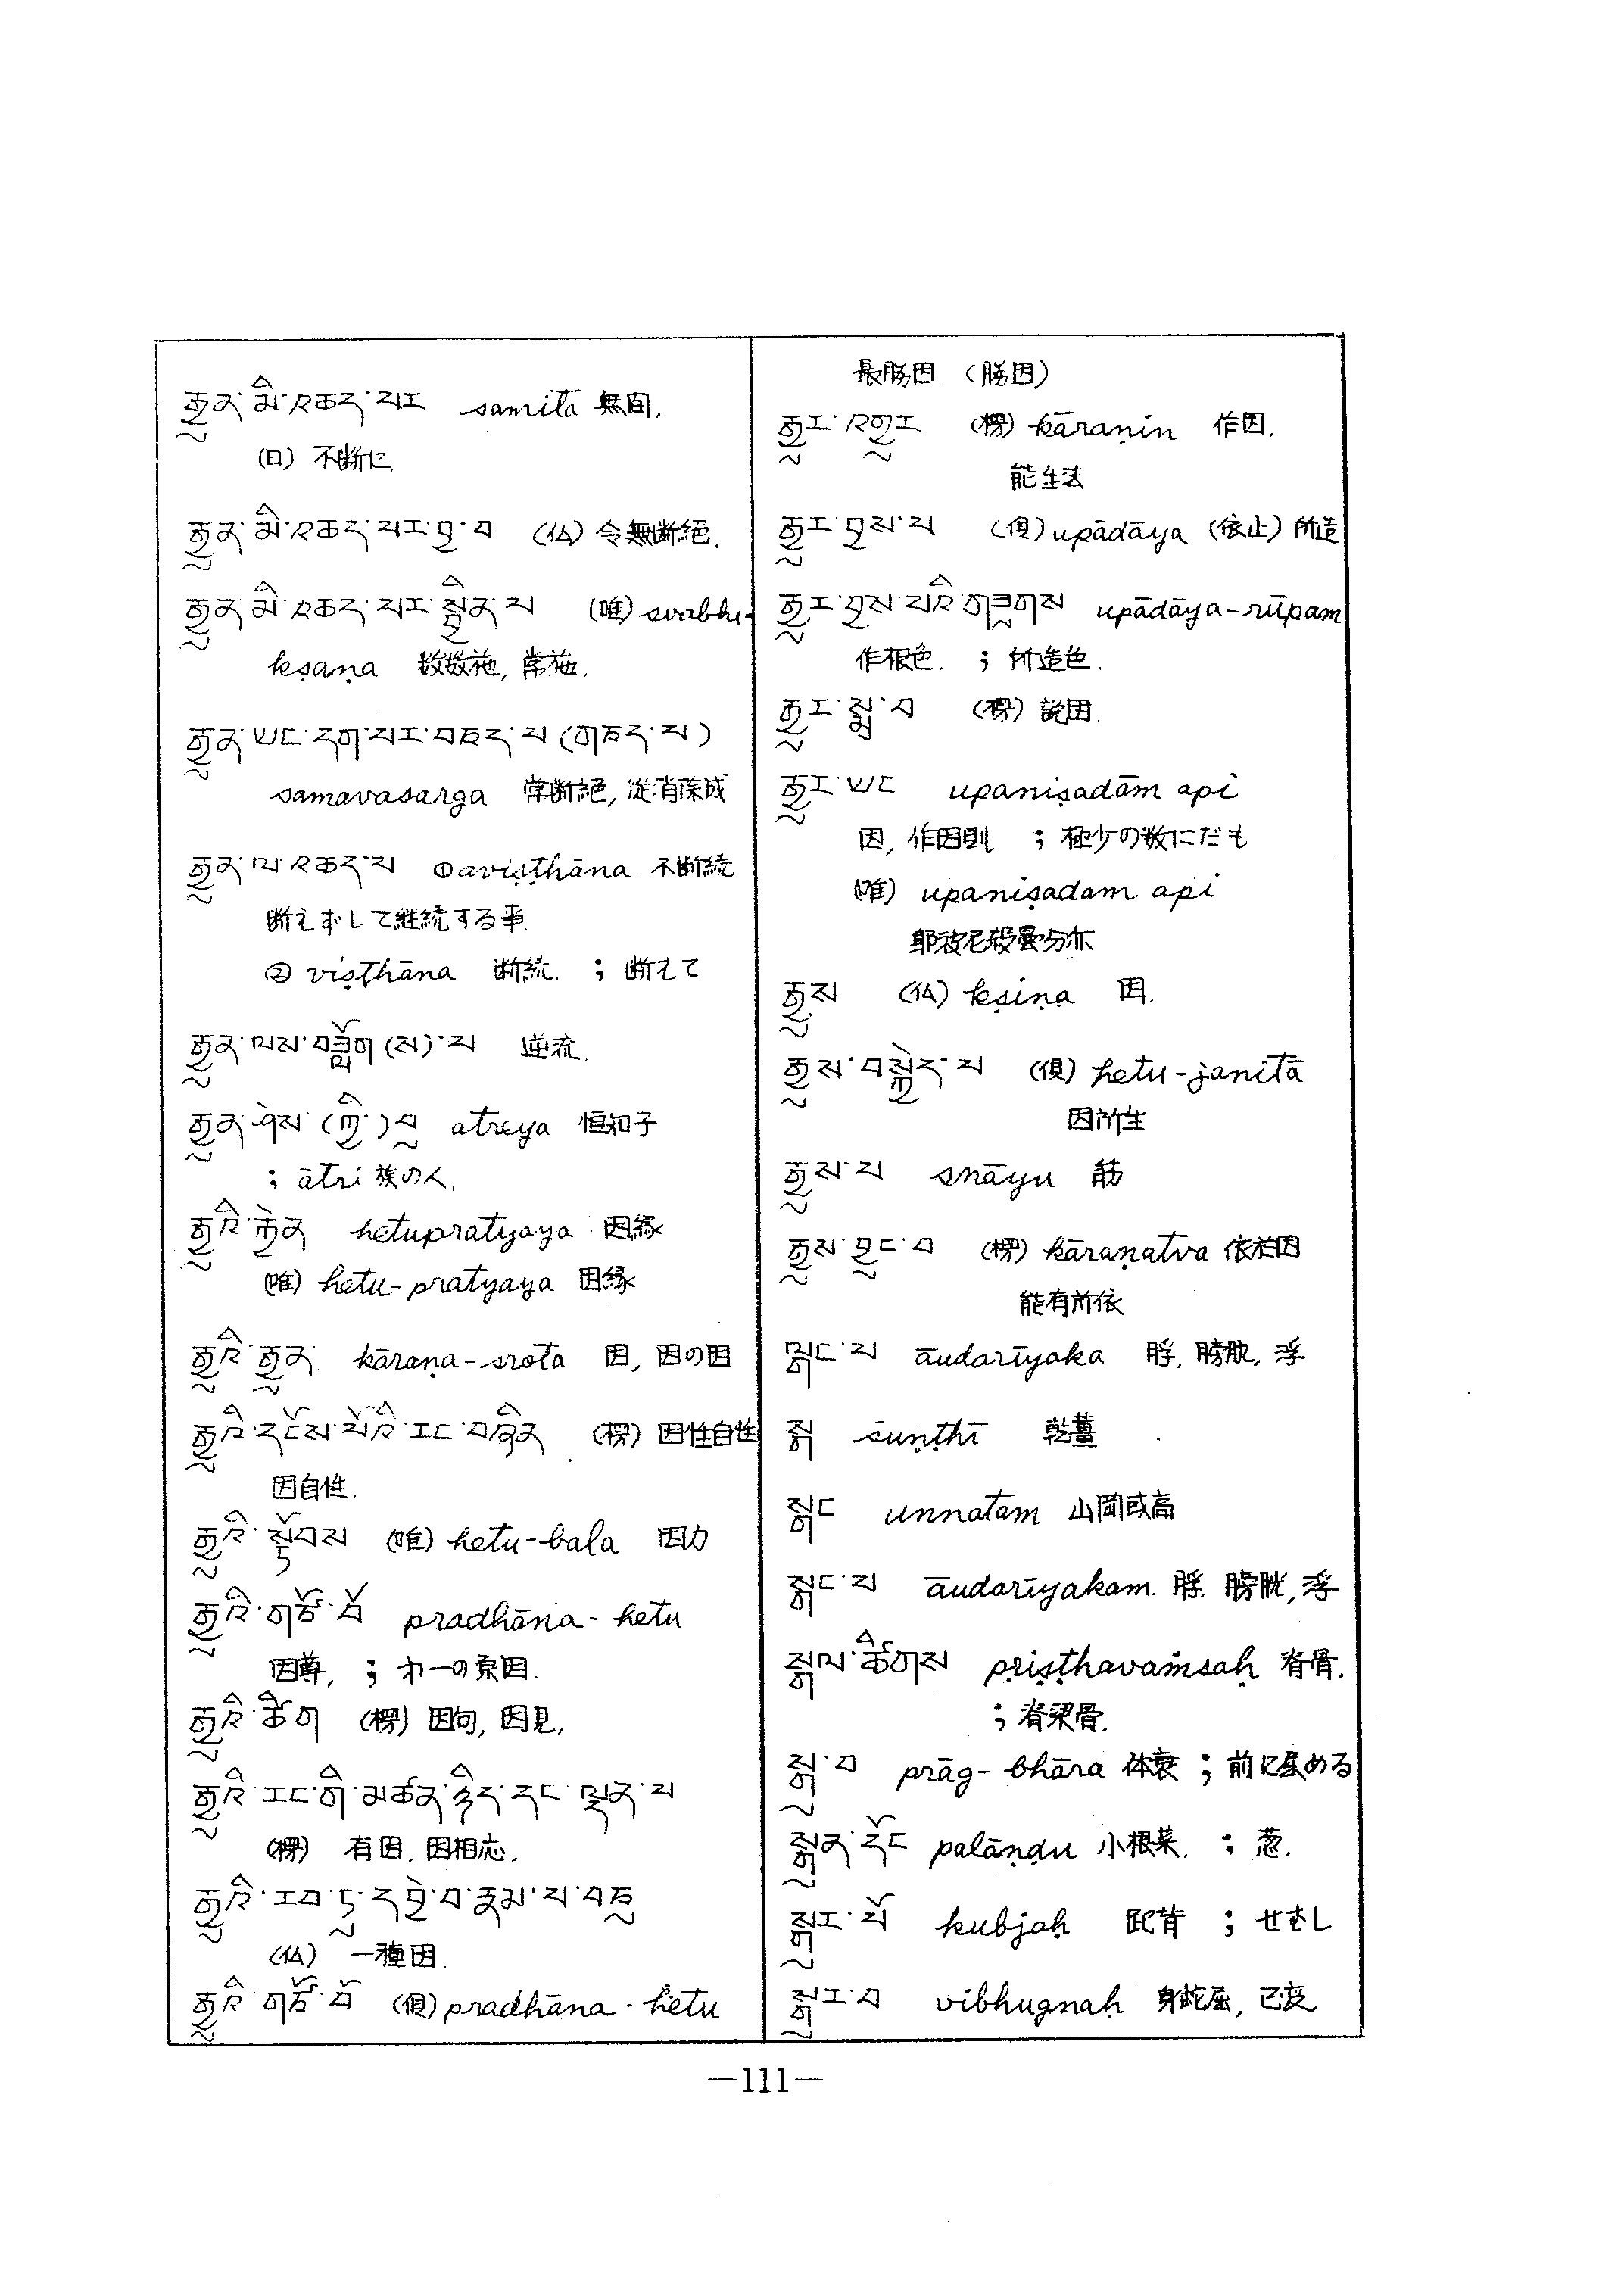 རྒྱུན་མི་འཆད་པར samitā 無間,
(日) 不断に
རྒྱུན་མི་འཆད་པར་བྱ་བ (仏) 令無断絕.
རྒྱུན་མི་འཆད་པར་སྦྱིན་པ (唯) svabhi-
kṣaṇa 数数施, 常施.
རྒྱུན་ཡང་དག་པར་བཅད་པ (གཅད་པ)
samavasarga 常断絕, 從消除成
རྒྱུན་ལ་འཆད་པ ①aviṣṭhāna 不断続
断えずして継続する事.
② viṣṭhāna 断続. ; 断えて
རྒྱུན་ལས་བཟློག(ས)་པ 逆流.
རྒྱུན་ཤེས་(ཀྱི་)བུ atreya 恒知子
; ātri 族の人.
རྒྱུའི་རྐྱེན hetupratyaya 因縁
(唯) hetu-pratyaya 因縁
རྒྱུའི་རྒྱུན kāraṇa-srota 因, 因の因
རྒྱུའི་དངོས་པོའི་རང་བཞིན (楞) 因性自性
因自性.
རྒྱུའི་སྟོབས (唯) hetu-bala 因力
རྒྱུའི་གཙོ་བོ pradhāna-hetu
因尊, ; 才一の原因.
རྒྱུའི་ཚིག (楞) 因句, 因見,
རྒྱུའི་རང་གི་མཚན་ཉིད་དང་ལྡན་པ
(楞) 有因. 因相応.
རྒྱུའི་རབ་ཏུ་དབྱེ་བ་རྣམ་པ་བཅུ
(仏) 一種因.
རྒྱུའི་གཙོ་བོ (俱) pradhāna-hetu
最勝因 (勝因)
རྒྱུར་འགྱུར (楞) kāraṇin 作因.
能生法
རྒྱུར་བྱས་པ (俱) upādāya (依止) 所造
རྒྱུར་བྱས་པའི་གཟུགས upādāya-rūpam
作根色. ; 所造色.
རྒྱུར་སྨྲ་བ (楞) 説因
རྒྱུར་ཡང upaniṣadām api
因, 作因則 ; 極少の数にだも
(唯) upaniṣadam api
耶波尼殺曇分亦
རྒྱུས (仏) kṣiṇa 因.
རྒྱུས་བསྐྱེད་པ (俱) hetu-janitā
因所生
རྒྱུས་པ snāyu 筋
རྒྱུས་བྱུང་བ (楞) kāraṇatva 依於因
能有所依
ལྒང་པ āudarīyaka 脬, 膀胱, 浮
སྒ śuṇṭhī 乾薑
སྒང unnatam 山岡或高
སྒང་པ āudarīyakam. 脬. 膀胱, 浮
སྒལ་ཚིགས pṛiṣṭhavaṁsaḥ 脊骨.
; 脊梁骨.
སྒུ་བ prāg-bhāra 体衰 ; 前に屈める
སྒུན་དོང palāṇḍu 小根菜. ; 葱.
སྒུར་པོ kubjaḥ 駝背 ; せむし
སྒུར་བ vibhugnaḥ 身蛇屈, 已变
—111—